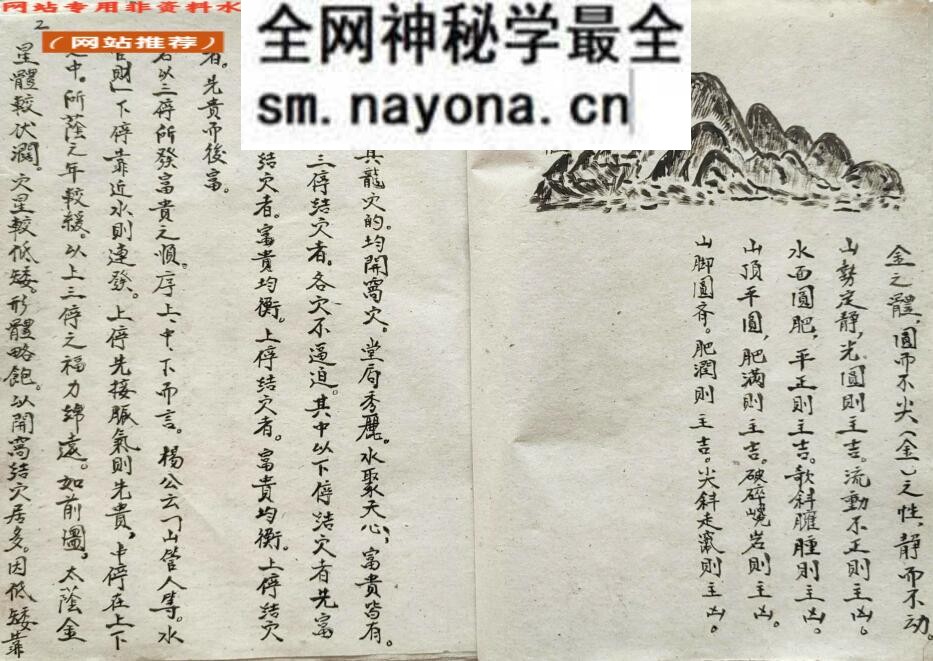 网站专用非资料水
全网神秘学最全
sm.nayona.cn
（网站推荐）
金之體，圓而不尖（金）之性，靜而不动。
山勢定靜，光圓則主吉。流動不正則主凶。
水面圓肥，平正則主吉。歌斜臃腫則主凶。
山頂平圓，肥满則主吉。破碎巉岩則主凶。
山脚圓齐。肥潤則主吉。尖斜走竄則主凶。
其龍穴的。均開窩穴。堂局秀麗。水聚天心，富貴皆有。
三停結穴者。各穴不逼迫。其中以下停結穴者先富
結穴者。富貴均衡。上停結穴者。富貴均衡。上停結穴
者。先貴而後富。
以三停所發富貴之順。序上、中、下而言。楊公云「山管人等。水
管財」下停靠近水則速發。上停先接脈氣則先貴，中停在上下
之中。所蔭之年較緩。以上三停之福力綿遠。如前圖。太蔭金
星體較伏濶。穴星較低矮。形體略飽。以開窩結穴居多。因低矮靠
2